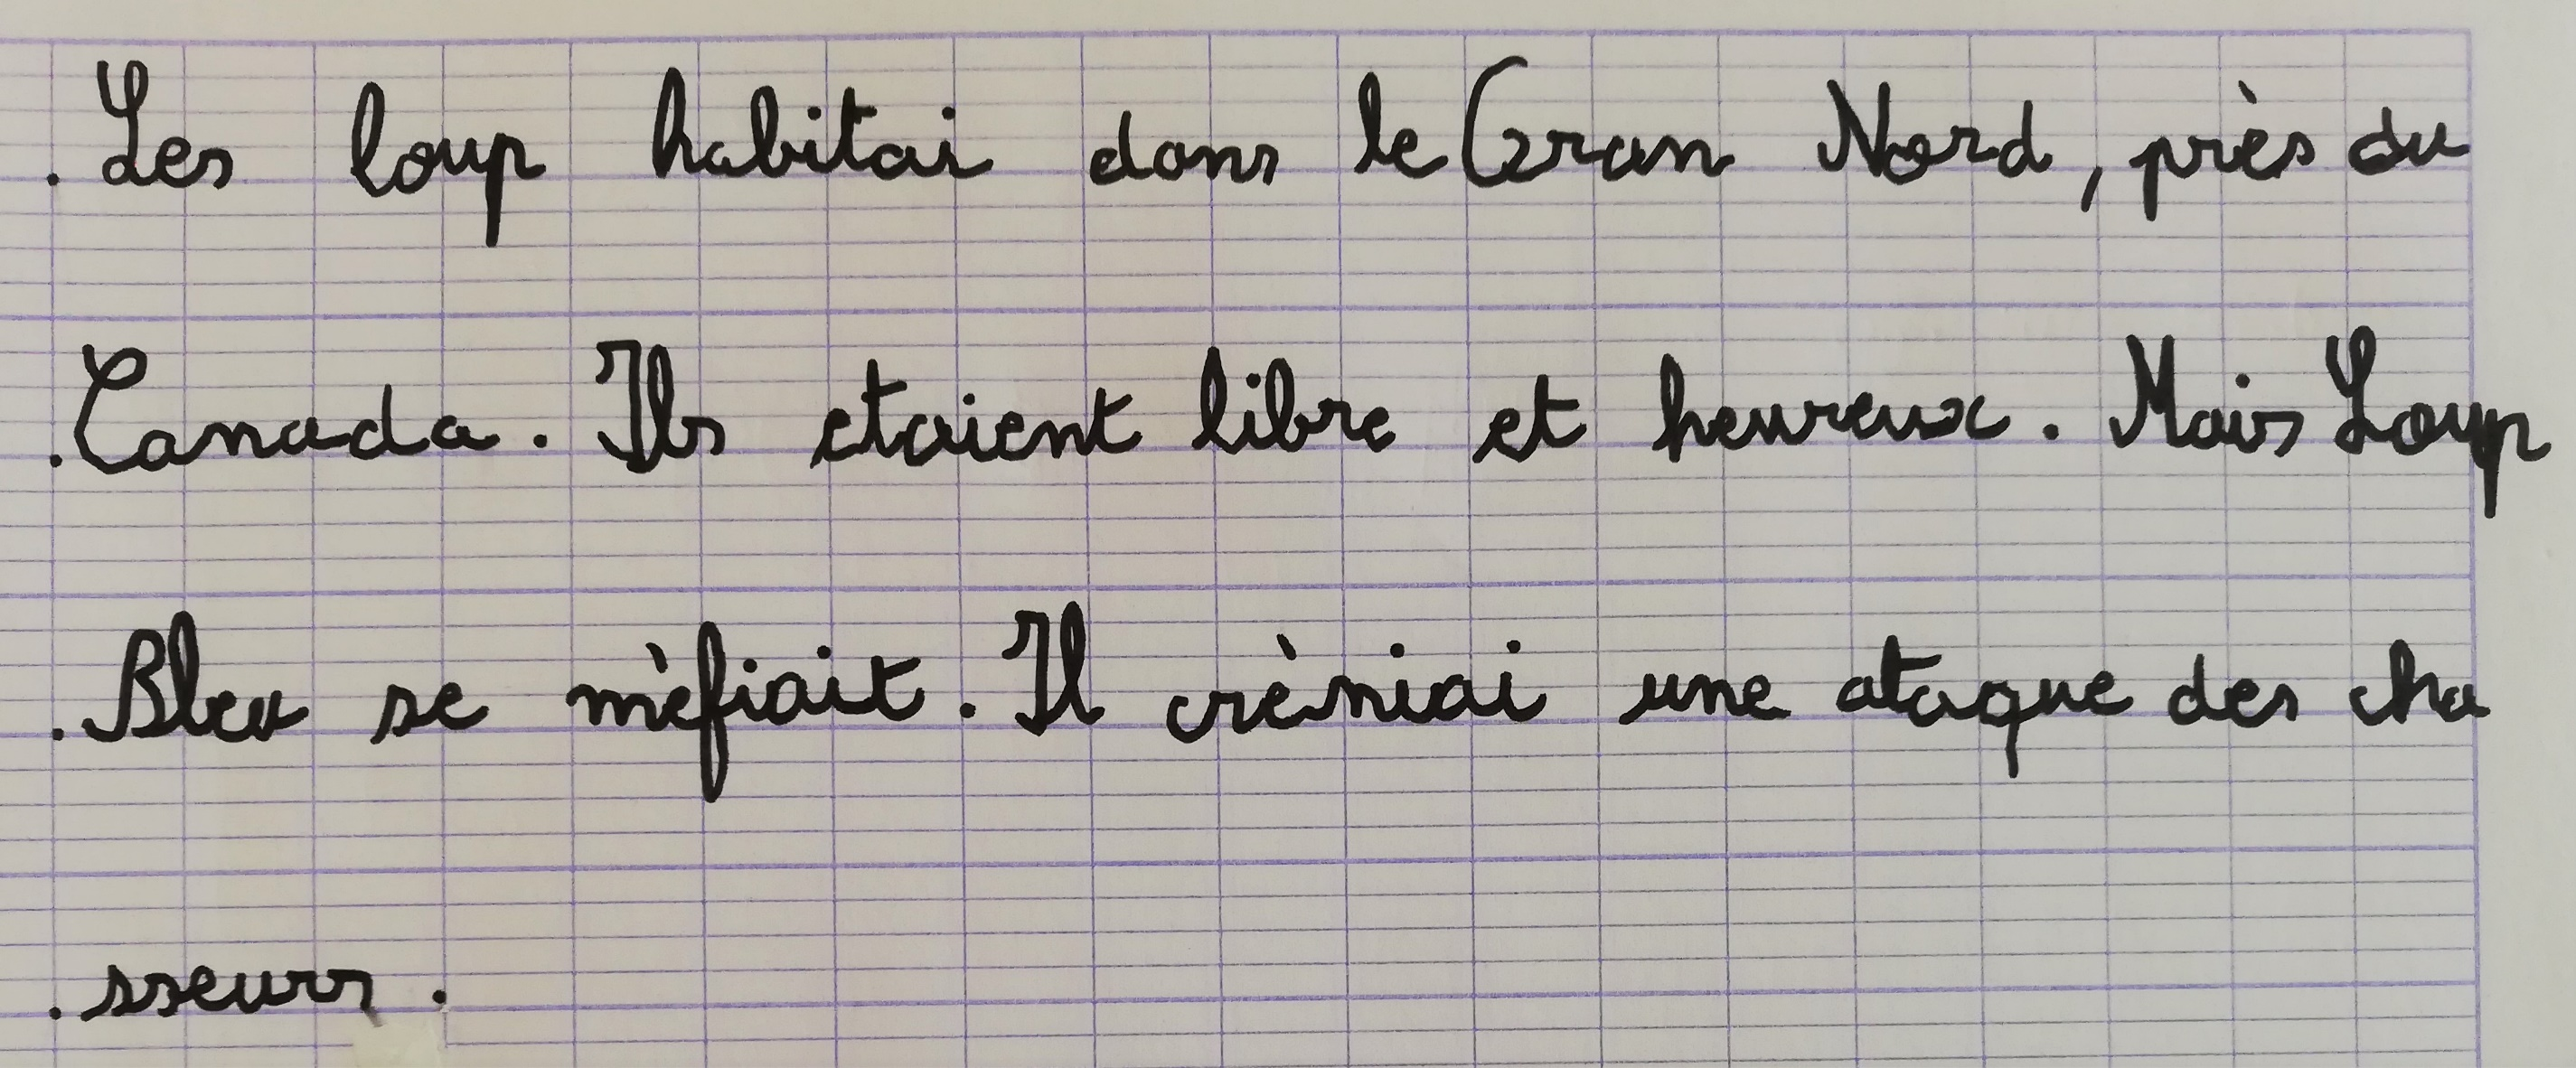 . Les loup habitai dans le Gran Nord, près du
. Canada. Ils etaient libre et heureux. Mais Loup
. Bleu se mèfiait. Il crèniai une ataque des cha
. sseurs.